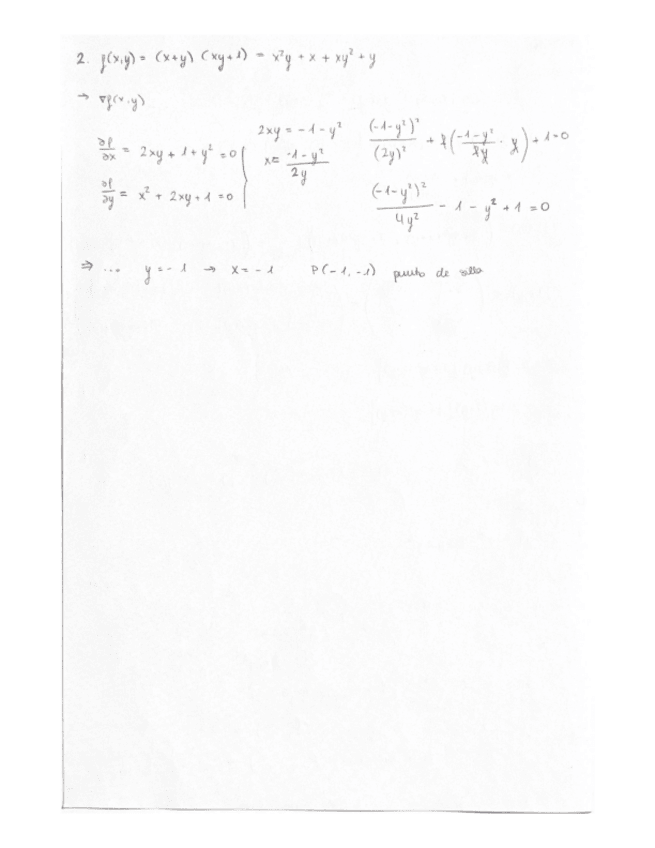 2. f(x,y) = (x+y) (xy+1) = x²y + x + xy² + y
→ ∇f(x,y)
∂f/∂x = 2xy + 1 + y² = 0
∂f/∂y = x² + 2xy + 1 = 0
2xy = -1 - y²
x = (-1-y²)/(2y)
(-1-y²)²/(2y)² + 2((-1-y²)/(2y) · y) + 1 = 0
(-1-y²)²/(4y²) - 1 - y² + 1 = 0
⇒ ... y = -1 → x = -1 P(-1, -1) punto de silla